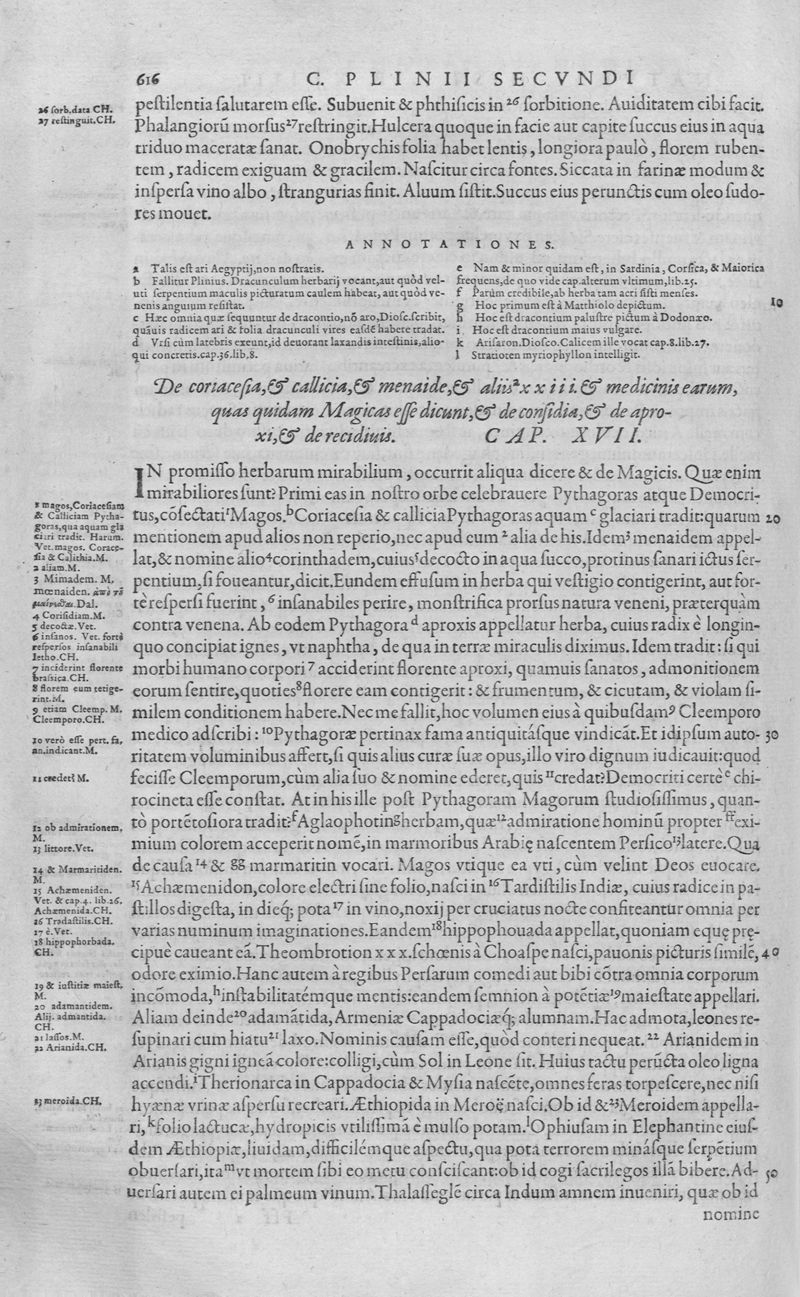 616 C. PLINII SECVNDI
peſtilentia ſalutarem eſſe. Subuenit & phthiſicis in ²⁶ ſorbitione. Auiditatem cibi facit.
Phalangiorũ morſus²⁷reſtringit.Hulcera quoque in facie aut capite ſuccus eius in aqua
triduo maceratæ ſanat. Onobrychis folia habet lentis, longiora paulò, florem ruben-
tem, radicem exiguam & gracilem. Naſcitur circa fontes. Siccata in farinæ modum &
inſperſa vino albo, ſtrangurias finit. Aluum ſiſtit.Succus eius perunctis cum oleo ſudo-
res mouet.
26 ſorb.data CH.
27 reſtinguit.CH.
ANNOTATIONES.
a Talis eſt ari Aegyptij,non noſtratis.
b Fallitur Plinius. Dracunculum herbarij vocant,aut quòd vel-
uti ſerpentium maculis picturatum caulem habeat, aut quòd ve-
nenis anguium reſiſtat.
c Hæc omnia quæ ſequuntur de dracontio,nõ aro,Dioſc.ſcribit,
quãuis radicem ari & folia dracunculi vires eaſdẽ habere tradat.
d Vrſi cùm latebris exeunt,id deuorant laxandis inteſtinis,alio-
qui concretis.cap.36.lib.8.
e Nam & minor quidam eſt, in Sardinia, Corſica, & Maiorica
frequens,de quo vide cap.alterum vltimum,lib.25.
f Parùm credibile,ab herba tam acri ſiſti menſes.
g Hoc primum eſt à Matthiolo depictum.
h Hoc eſt dracontium paluſtre pictum à Dodonæo.
i Hoc eſt dracontium maius vulgare.
k Ariſaron.Dioſco.Calicem ille vocat cap.8.lib.27.
l Stratioten myriophyllon intelligit.
10
De coriaceſia,& callicia,& menaide,& aliis xxiii.& medicinis earum,
quas quidam Magicas eſſe dicunt,& de conſidia,& de apro-
xi,& de recidiuis. CAP. XVII.
IN promiſſo herbarum mirabilium, occurrit aliqua dicere & de Magicis. Quæ enim
mirabiliores ſunt? Primi eas in noſtro orbe celebrauere Pythagoras atque Democri-
tus,cõſectati¹Magos.ᵇCoriaceſia & callicia Pythagoras aquam ᶜ glaciari tradit:quarum 20
mentionem apud alios non reperio,nec apud eum ² alia de his.Idem³ menaidem appel-
lat,& nomine alio⁴corinthadem,cuius⁵decocto in aqua ſucco,protinus ſanari ictus ſer-
pentium,ſi foueantur,dicit.Eundem effuſum in herba qui veſtigio contigerint, aut for-
tè reſperſi fuerint, ⁶ inſanabiles perire, monſtrifica prorſus natura veneni, præterquàm
contra venena. Ab eodem Pythagora ᵈ aproxis appellatur herba, cuius radix è longin-
quo concipiat ignes, vt naphtha, de qua in terræ miraculis diximus. Idem tradit: ſi qui
morbi humano corpori ⁷ acciderint florente aproxi, quamuis ſanatos, admonitionem
eorum ſentire,quoties⁸florere eam contigerit: & frumentum, & cicutam, & violam ſi-
milem conditionem habere.Nec me fallit,hoc volumen eius à quibuſdam⁹ Cleemporo
medico adſcribi: ¹⁰Pythagoræ pertinax fama antiquitáſque vindicãt.Et idipſum auto- 30
ritatem voluminibus affert,ſi quis alius curæ ſuæ opus,illo viro dignum iudicauit:quod
feciſſe Cleemporum,cùm alia ſuo & nomine ederet,quis ¹¹credat?Democriti certè ᵉ chi-
rocineta eſſe conſtat. At in his ille poſt Pythagoram Magorum ſtudioſiſſimus, quan-
tò portẽtoſiora tradit?ᶠAglaophotinᵍherbam,quæ¹²admiratione hominũ propter ᶠᶠexi-
mium colorem acceperit nomẽ,in marmoribus Arabię naſcentem Perſico¹³latere.Qua
de cauſa ¹⁴ & ᵍᵍ marmaritin vocari. Magos vtique ea vti, cùm velint Deos euocare.
¹⁵Achæmenidon,colore electri ſine folio,naſci in ¹⁶Tardiſtilis Indiæ, cuius radice in pa-
ſtillos digeſta, in dieq; pota ¹⁷ in vino,noxij per cruciatus nocte confiteantur omnia per
varias numinum imaginationes.Eandem¹⁸hippophouada appellat,quoniam equę prę-
cipuè caueant eã.Theombrotion xxx.ſchœnis à Choaſpe naſci,pauonis picturis ſimilẽ, 40
odore eximio.Hanc autem à regibus Perſarum comedi aut bibi cõtra omnia corporum
incõmoda,ʰinſtabilitatémque mentis:eandem ſemnion à potẽtiæ¹⁹maieſtate appellari.
Aliam deinde²⁰adamãtida,Armeniæ Cappadociæq; alumnam.Hac admota,leones re-
ſupinari cum hiatu²¹ laxo.Nominis cauſam eſſe,quòd conteri nequeat. ²² Arianidem in
Arianis gigni igneã colore:colligi,cùm Sol in Leone ſit. Huius tactu perũcta oleo ligna
accendi.ⁱTherionarca in Cappadocia & Myſia naſcẽte,omnes feras torpeſcere,nec niſi
hyænæ vrinæ aſperſu recreari.Æthiopida in Meroę naſci.Ob id &²³Meroidem appella-
ri,ᵏfolio lactucæ,hydropicis vtiliſſimã è mulſo potam.ˡOphiuſam in Elephantine eiuſ-
dem Æthiopiæ,liuidam,difficilémque aſpectu,qua pota terrorem minãſque ſerpẽtium
obuerſari,itaᵐvt mortem ſibi eo metu conſciſcant:ob id cogi ſacrilegos illã bibere.Ad- 50
uerſari autem ei palmeum vinum.Thalaſſeglẽ circa Indum amnem inueniri, quæ ob id
nomine
1 magos,Coriaceſiam
& Calliciam Pytha-
goras,qua aquam gla
ciari tradit. Harum.
Vet.magos. Corace-
ſia & Calithia.M.
2 aliam.M.
3 Mimadem. M.
mœnaiden.
Dal.
4 Coriſidiam.M.
5 decoctæ.Vet.
6 inſanos. Vet. fortè
reſperſos inſanabili
letho.CH.
7 inciderint florente
braſsica.CH.
8 florem cum tetige-
rint.M.
9 etiam Cleemp. M.
Cleemporo.CH.
10 verò eſſe pert. fa.
an.indicant.M.
11 crederet M.
12 ob admirationem.
M.
13 littore.Vet.
14 & Marmaritiden.
M.
15 Achæmeniden.
Vet. & cap.4. lib.26.
Achæmenida.CH.
16 Tradaſtilis.CH.
17 è.Vet.
18 hippophorbada.
CH.
19 & iuſtitiæ maieſt.
M.
20 adamantidem.
Alij. admantida.
CH.
21 laſſos.M.
22 Arianida.CH.
23 meroida.CH.